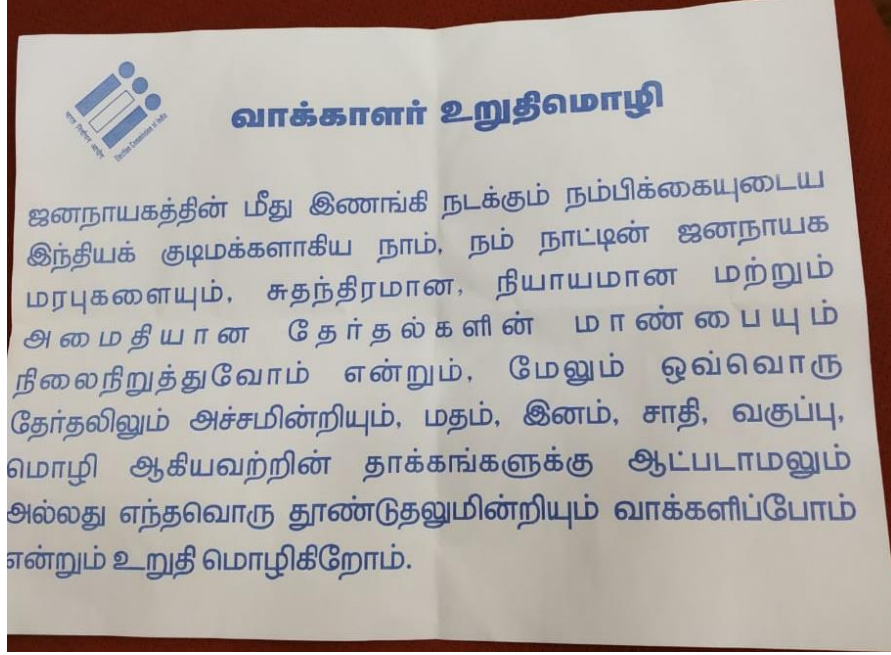 வாக்காளர் உறுதிமொழி
भारत निर्वाचन आयोग
Election Commission of India
ஜனநாயகத்தின் மீது இணங்கி நடக்கும் நம்பிக்கையுடைய
இந்தியக் குடிமக்களாகிய நாம், நம் நாட்டின் ஜனநாயக
மரபுகளையும், சுதந்திரமான, நியாயமான மற்றும்
அமைதியான தேர்தல்களின் மாண்பையும்
நிலைநிறுத்துவோம் என்றும், மேலும் ஒவ்வொரு
தேர்தலிலும் அச்சமின்றியும், மதம், இனம், சாதி, வகுப்பு,
மொழி ஆகியவற்றின் தாக்கங்களுக்கு ஆட்படாமலும்
அல்லது எந்தவொரு தூண்டுதலுமின்றியும் வாக்களிப்போம்
என்றும் உறுதி மொழிகிறோம்.